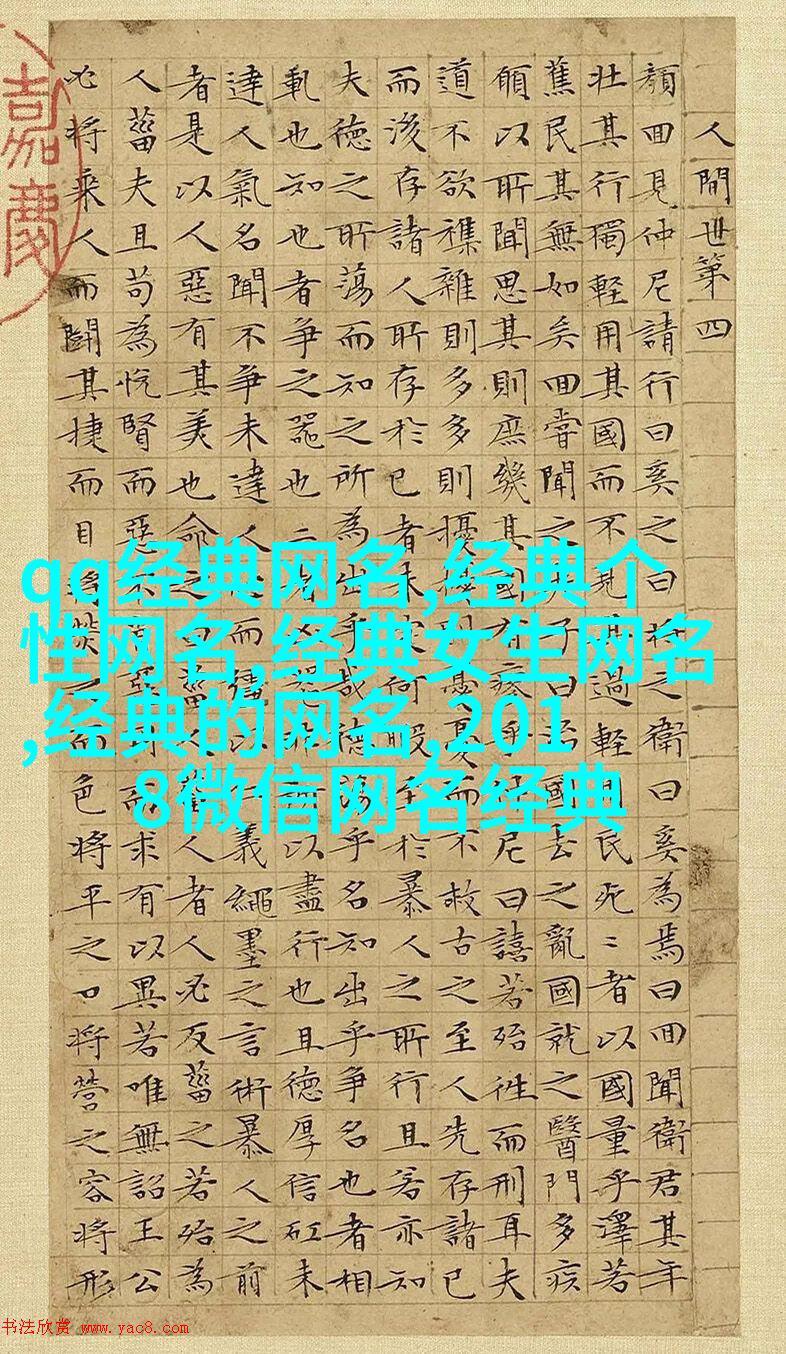 人間世第四
顏囬見仲尼請行曰奚之曰將之衛曰奚為焉曰囬聞衛君其年
壯其行獨輕用其國而不見其過輕用民死〻者以國量乎澤若
蕉民其無如矣囬嘗聞之夫子曰治國去之亂國就之醫門多疾
願以所聞思其則庶幾其國有瘳乎仲尼曰譆若殆往而刑耳夫
道不欲襍雜則多多則擾擾則憂憂而不救古之至人先存諸已
而後存諸人所存於已者未定何暇至於暴人之所行且若亦知
夫德之所蕩而知之所為出乎哉德蕩乎名知出乎爭名也者相
軋也知也者爭之器也二者凶器非所以盡行也且德厚信矼未
達人氣名聞不爭未達人而彊以義繩墨之言術暴人之前
者是以人惡有其美也命之曰菑人菑人者人必反菑之若殆為
人菑夫且苟為悅賢而惡不惡而求有以異若唯無詔王公
必將乘人而鬭其捷而目將熒之而色將平之口將營之容將形
嘉慶
qq经典网名,经典个
性网名,经典女生网名
,经典的网名,201
8微信网名经典
书法欣赏 www.yac8.com